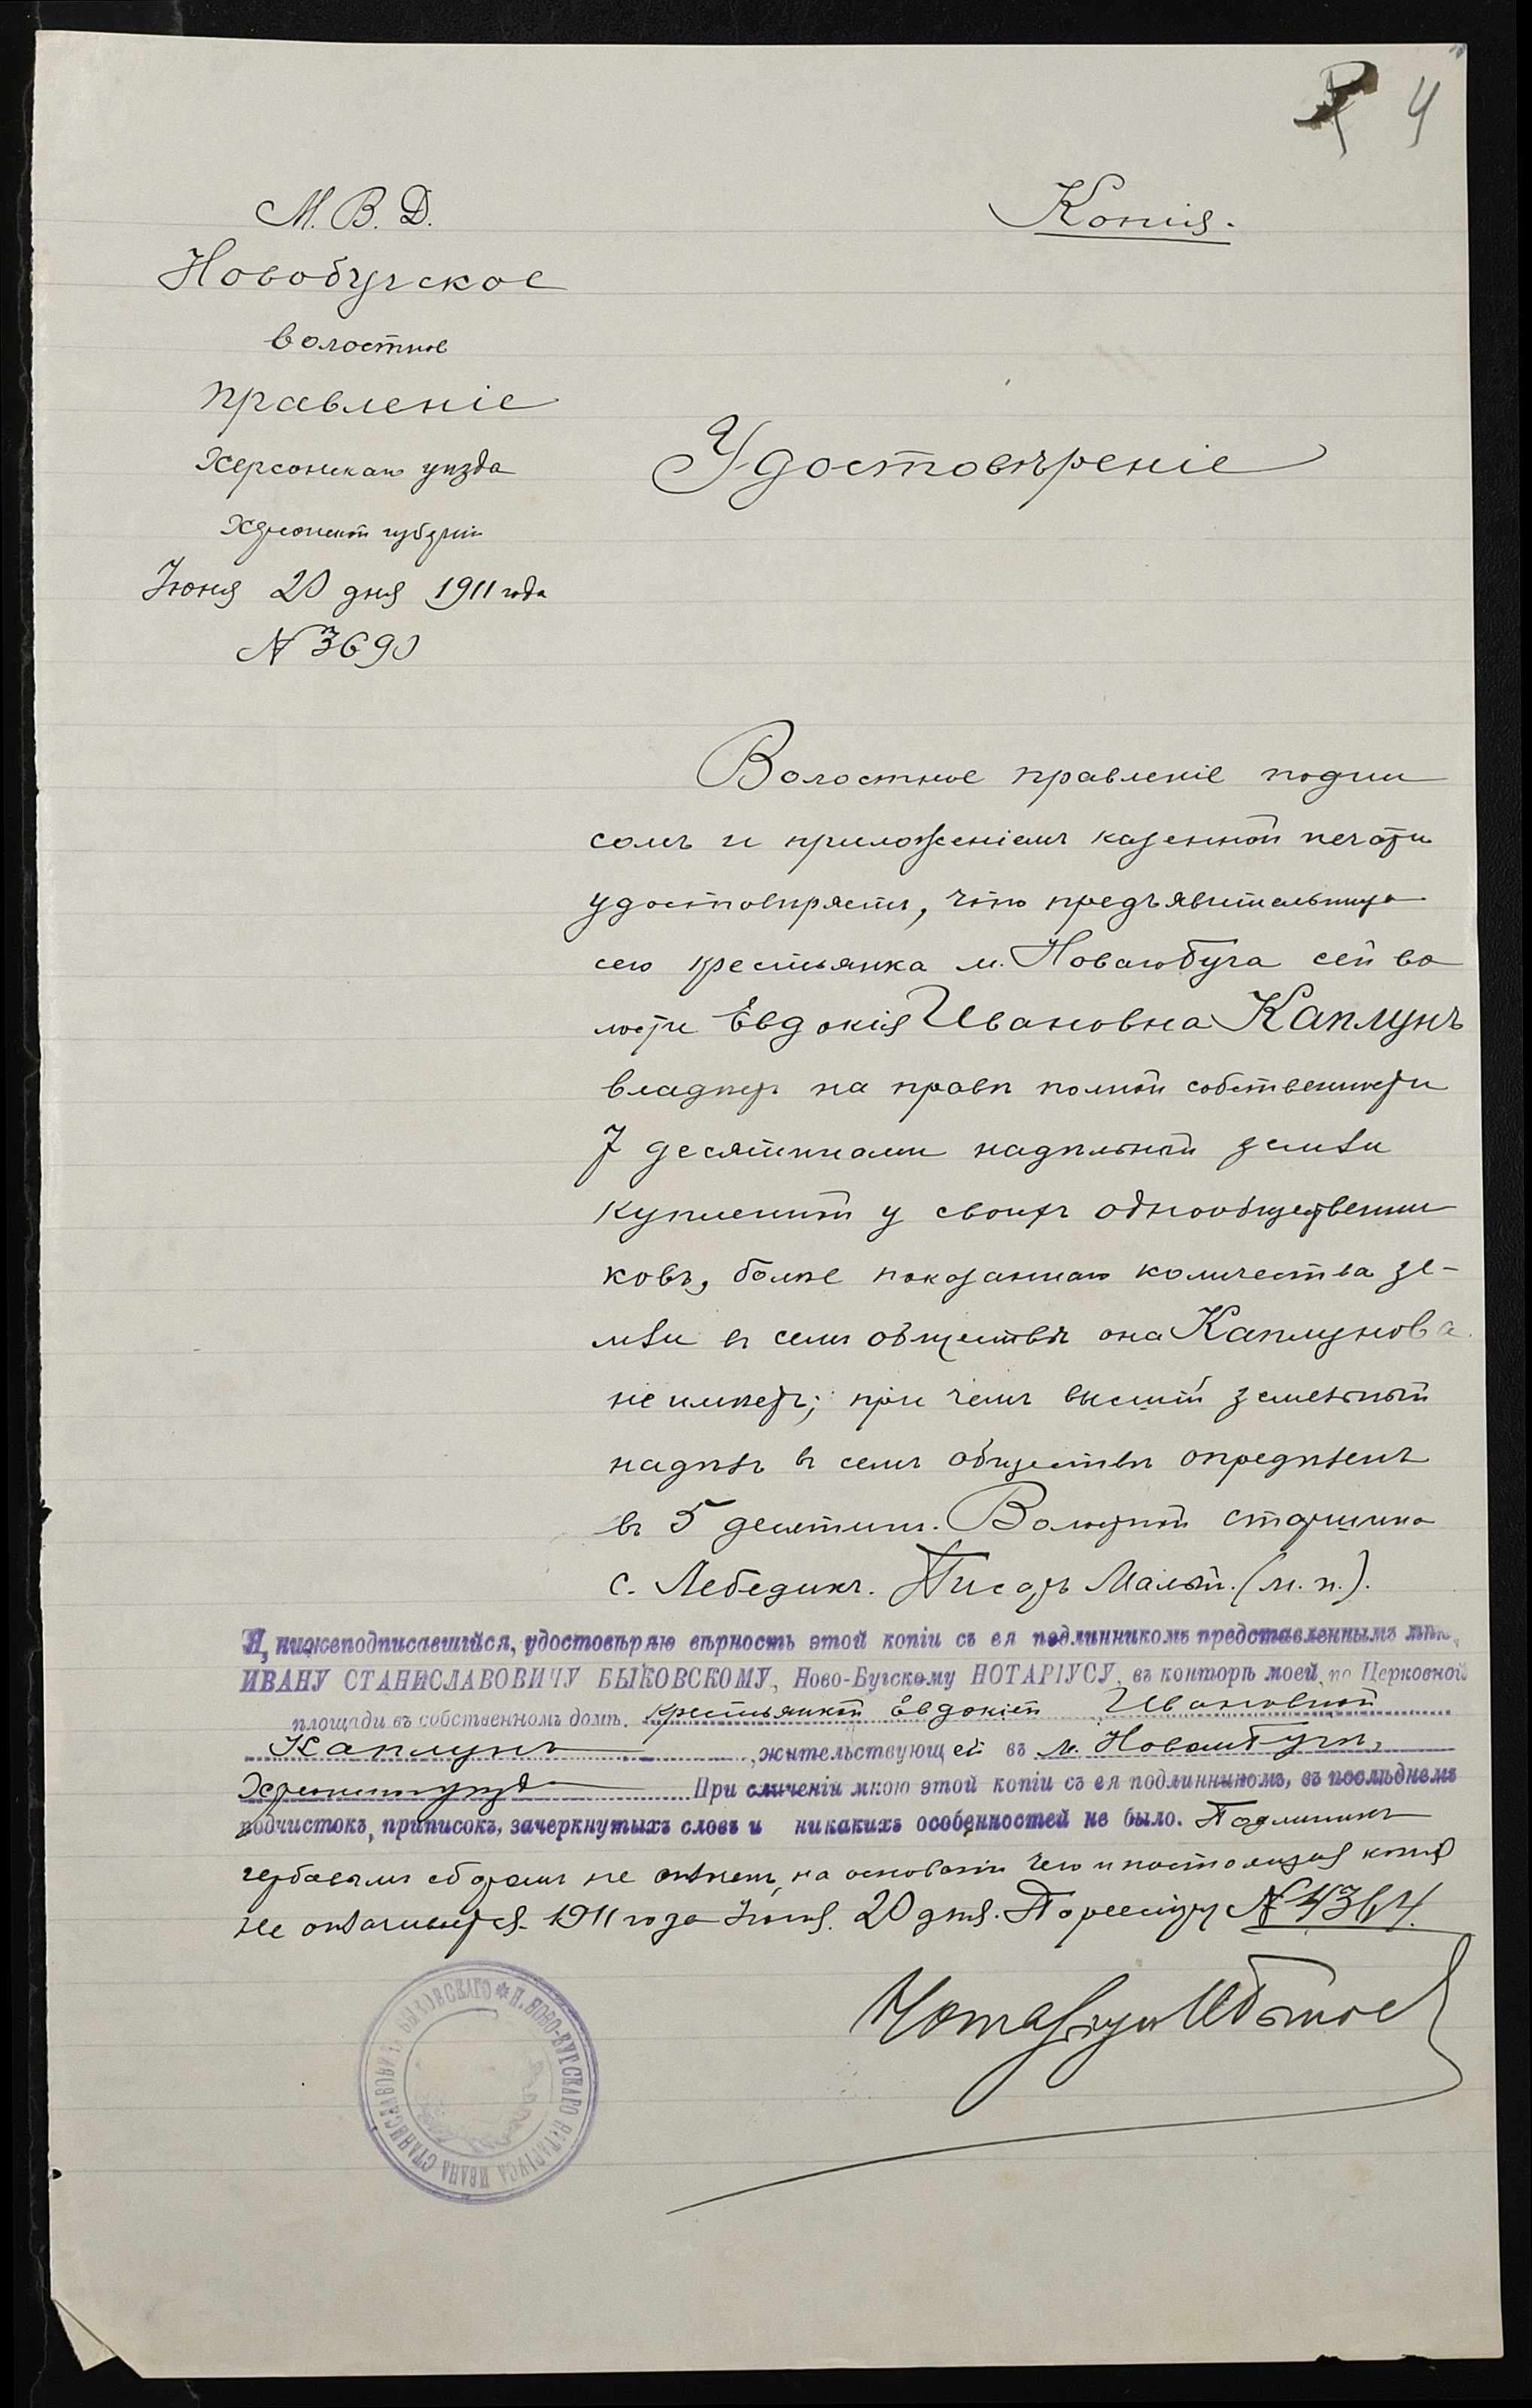 4
М. В. Д.
Копія.
Новобугское
волостное
правленіе
Херсонскаго уѣзда
Херсонской губерніи
Удостовѣреніе
Іюня 20 дня 1911 года
№ 3690
Волостное правленіе подпи
сомъ и приложеніемъ казенной печати
удостовѣряетъ, что предъявительница
сего крестьянка м. Новаго Буга сей во
лости Евдокія Ивановна Каплунъ
владѣетъ на правѣ полной собственности
7 десятинами надѣльной земли
купленной у своихъ однообщественни
ковъ, болѣе показаннаго количества зе-
мли въ семъ обществѣ она Каплунова
не имѣетъ; при чемъ высшій земельный
надѣлъ въ семъ обществѣ опредѣленъ
въ 5 десятинъ. Волостной старшина
С. Лебедикъ. Писарь (м. п.).
Я, нижеподписавшійся, удостовѣряю вѣрность этой копіи съ ея подлинникомъ представленнымъ мнѣ,
ИВАНУ СТАНИСЛАВОВИЧУ БЫКОВСКОМУ, Ново-Бугскому НОТАРІУСУ, въ конторѣ моей, по Церковной
площади въ собственномъ домѣ, крестьянкой Евдокіей Ивановной
Каплунъ, жительствующей въ м. Новомъ Бугѣ,
Херсонскаго уѣзда При сличеніи мною этой копіи съ ея подлинникомъ, въ послѣднемъ
подчистокъ, приписокъ, зачеркнутыхъ словъ и никакихъ особенностей не было. Подлинникъ
гербовымъ сборомъ не оплаченъ, на основаніи чего и настоящая копія
не оплачивается. 1911 года Іюня 20 дня. По реестру № 4364.
Нотаріусъ И Быков
И. НОВО-БУГСКАГО НОТАРІУСА ИВАНА СТАНИСЛАВОВИЧА БЫКОВСКАГО